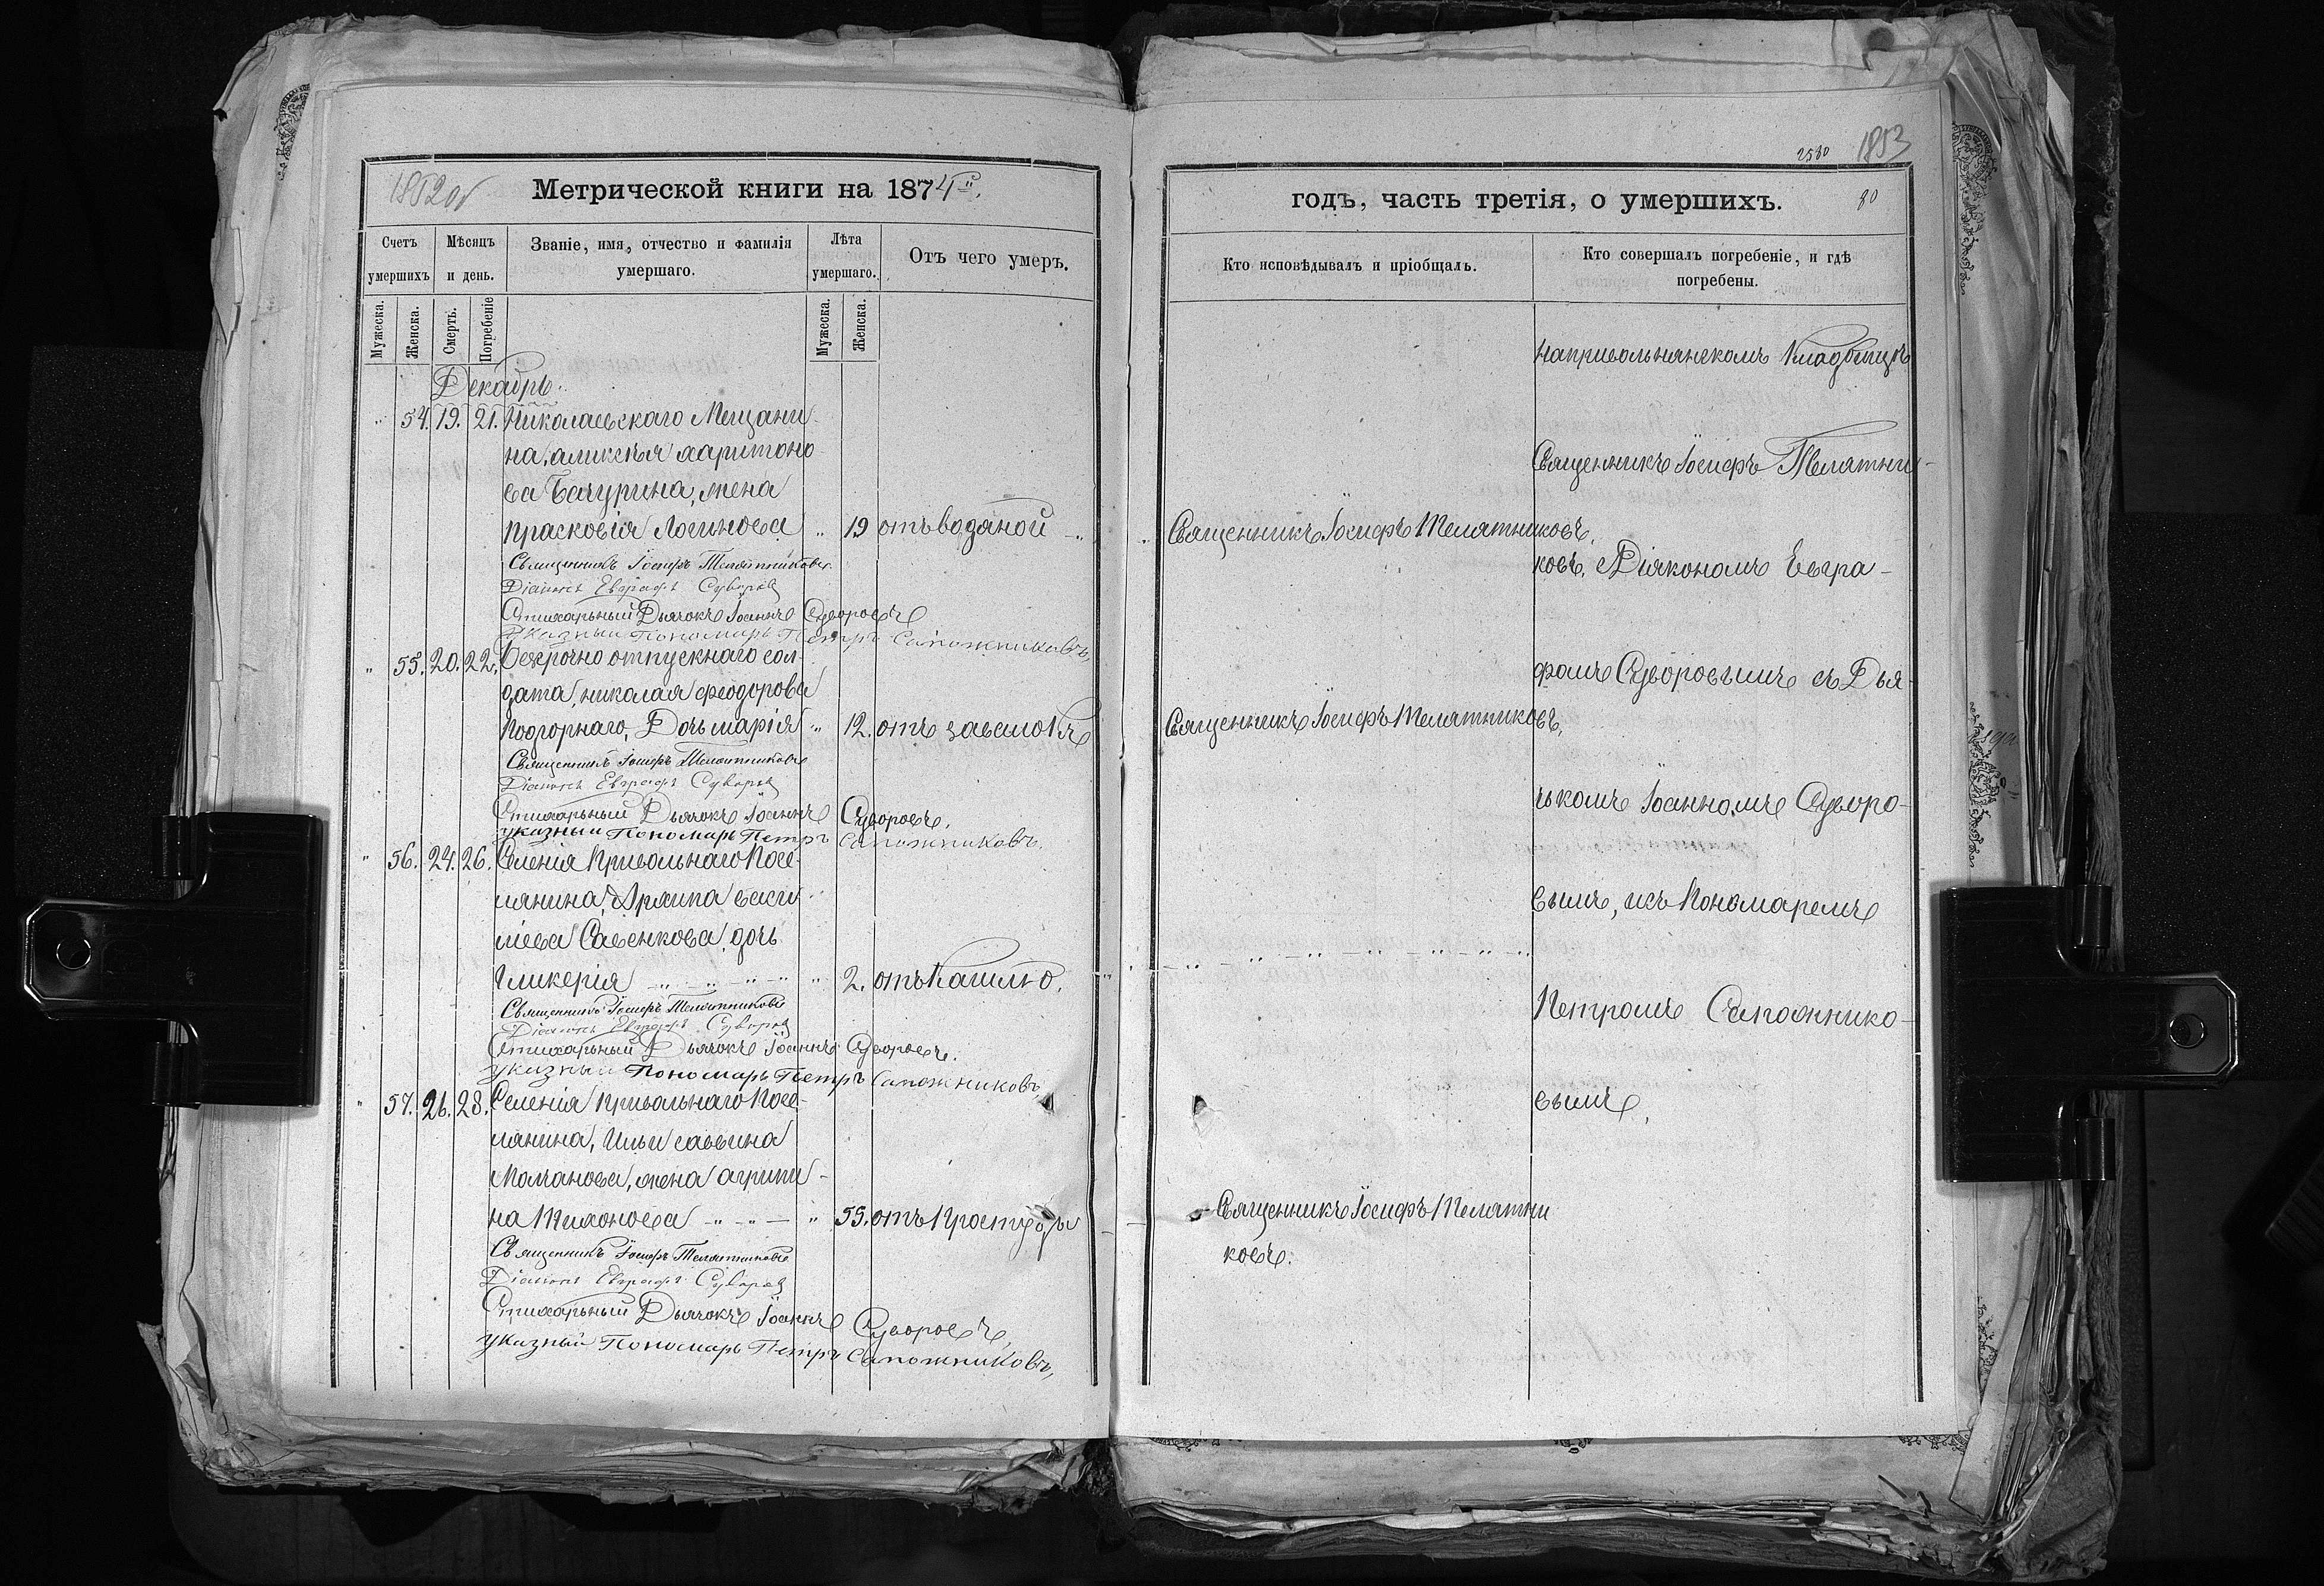 1852об
Метрической книги на 1874й.
Счетъ умершихъ
Мѣсяцъ и день.
Званіе, имя, отчество и фамилія умершаго.
Лѣта умершаго.
Отъ чего умеръ.
Мужеска.
Женска.
Смерть.
Погребеніе
Мужеска.
Женска.
Декабрь.
" 54. 19. 21. Николаевскаго Мещани
на, аликсѣя харитоно
ва Бачурина, жена
прасковія Логинова " 19 отъ водяной
Священникъ Іосифъ Телятниковъ.
Діаконъ Евграфъ Суворов
Стихарный Дьячокъ Іоаннъ Суворовъ
Указный Пономарь Петръ Сапожниковъ,
" 55. 20. 22. Безсрочно отпускнаго сол-
дата, николая феодорова
Подгорнаго, Дочь марія " 12. отъ завалокъ
Священникъ Іосифъ Телятниковъ
Діаконъ Евграфъ Суворов
Стихарный Дьячокъ Іоаннъ Суворовъ.
указный Пономарь Петръ Сапожниковъ.
" 56. 24. 26. Селенія Привольнаго Посе-
лянина, Архипа васи
лієва Савенкова, дочь
Гликерія " 2. отъ Кашлю.
Священникъ Іосифъ Телятниковъ
Діаконъ Евграфъ Суворов
Стихарный Дьячокъ Іоаннъ Суворовъ.
указный Пономарь Петръ Сапожниковъ
" 57. 26. 28. Селенія Привольнаго Посе-
лянина, Ильи саввина
Моманова, жена агрипи-
на Тихонова " 55. отъ Простуды
Священникъ Іосифъ Телятниковъ
Діаконъ Евграфъ Суворов
Стихарный Дьячокъ Іоаннъ Суворовъ,
указный Пономарь Петръ Сапожниковъ,
2580 1853
годъ, часть третія, о умершихъ.
80
Кто исповѣдывалъ и пріобщалъ.
Кто совершалъ погребеніе, и гдѣ погребены.
На привольнянскомъ Кладбищѣ
Священникъ Іосифъ Телятни-
Священникъ Іосифъ Телятниковъ.
ковъ, съ Діякономъ Евгра-
фомъ Суворовымъ съ Дья-
Священникъ Іосифъ Телятниковъ,
чькомъ Іоанномъ Суворо-
вымъ, исъ Пономаремъ
Петромъ Сапожнико-
вымъ,
Священникъ Іосифъ Телятни
ковъ.